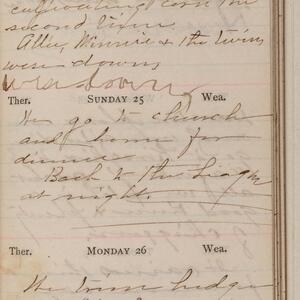 cultivating corn the
second time
Allie, Minnie & the twins
were down,
Ther. SUNDAY 25 Wea.
We go to church
and home for
dinner
Back to the League
at night.
Ther. MONDAY 26 Wea.
the hedge